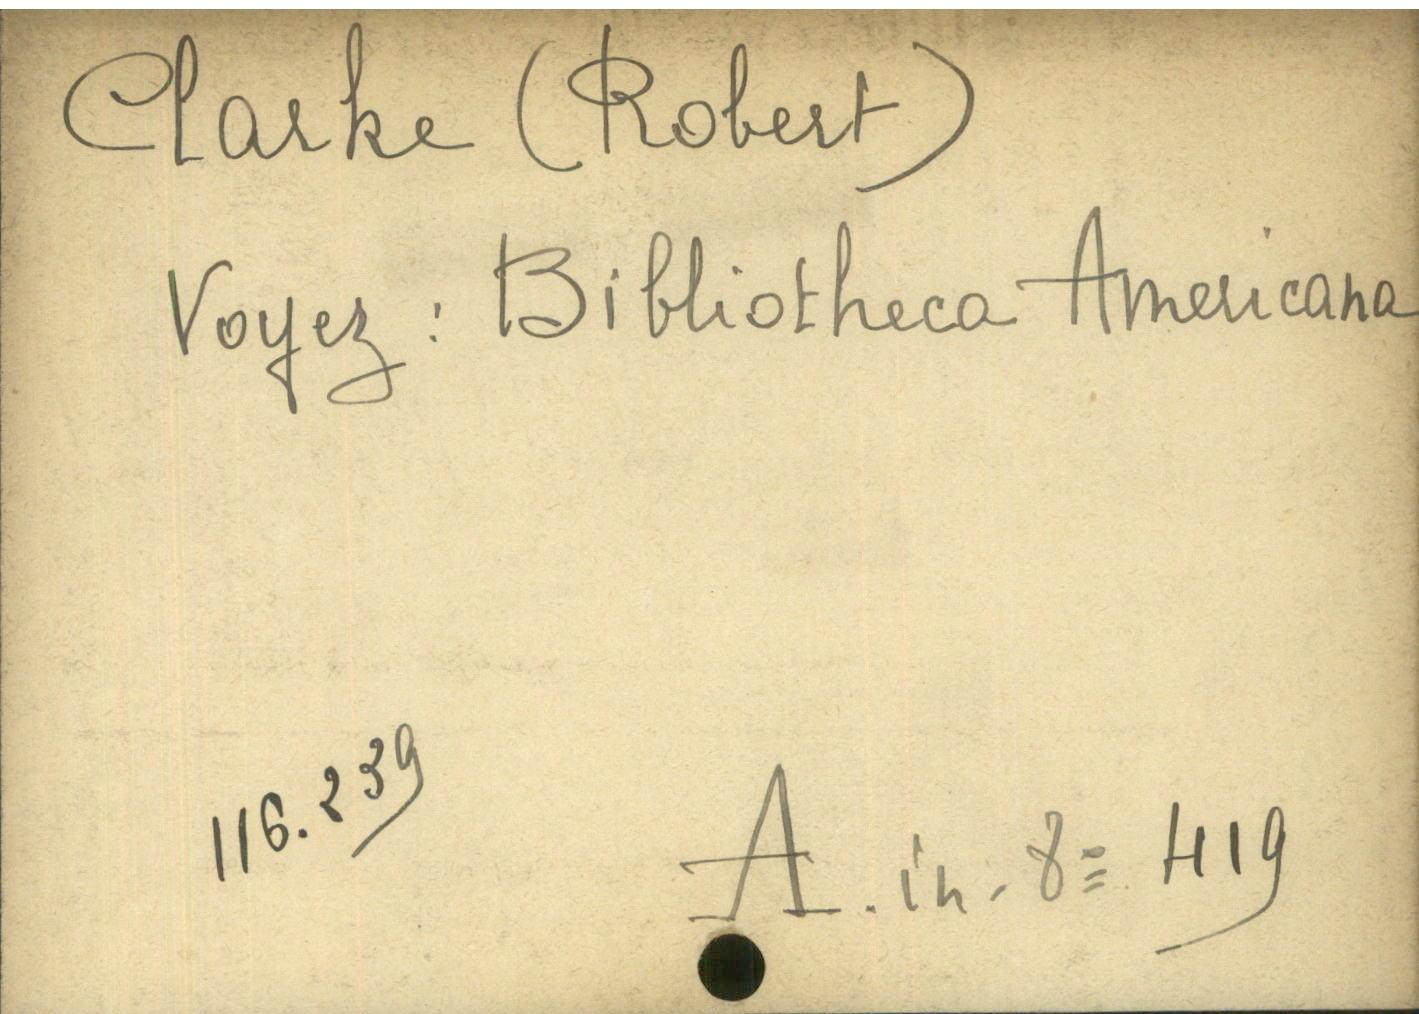 Clarke (Robert)
Voyez : Bibliotheca Americana
116.239
A. in-8= 419